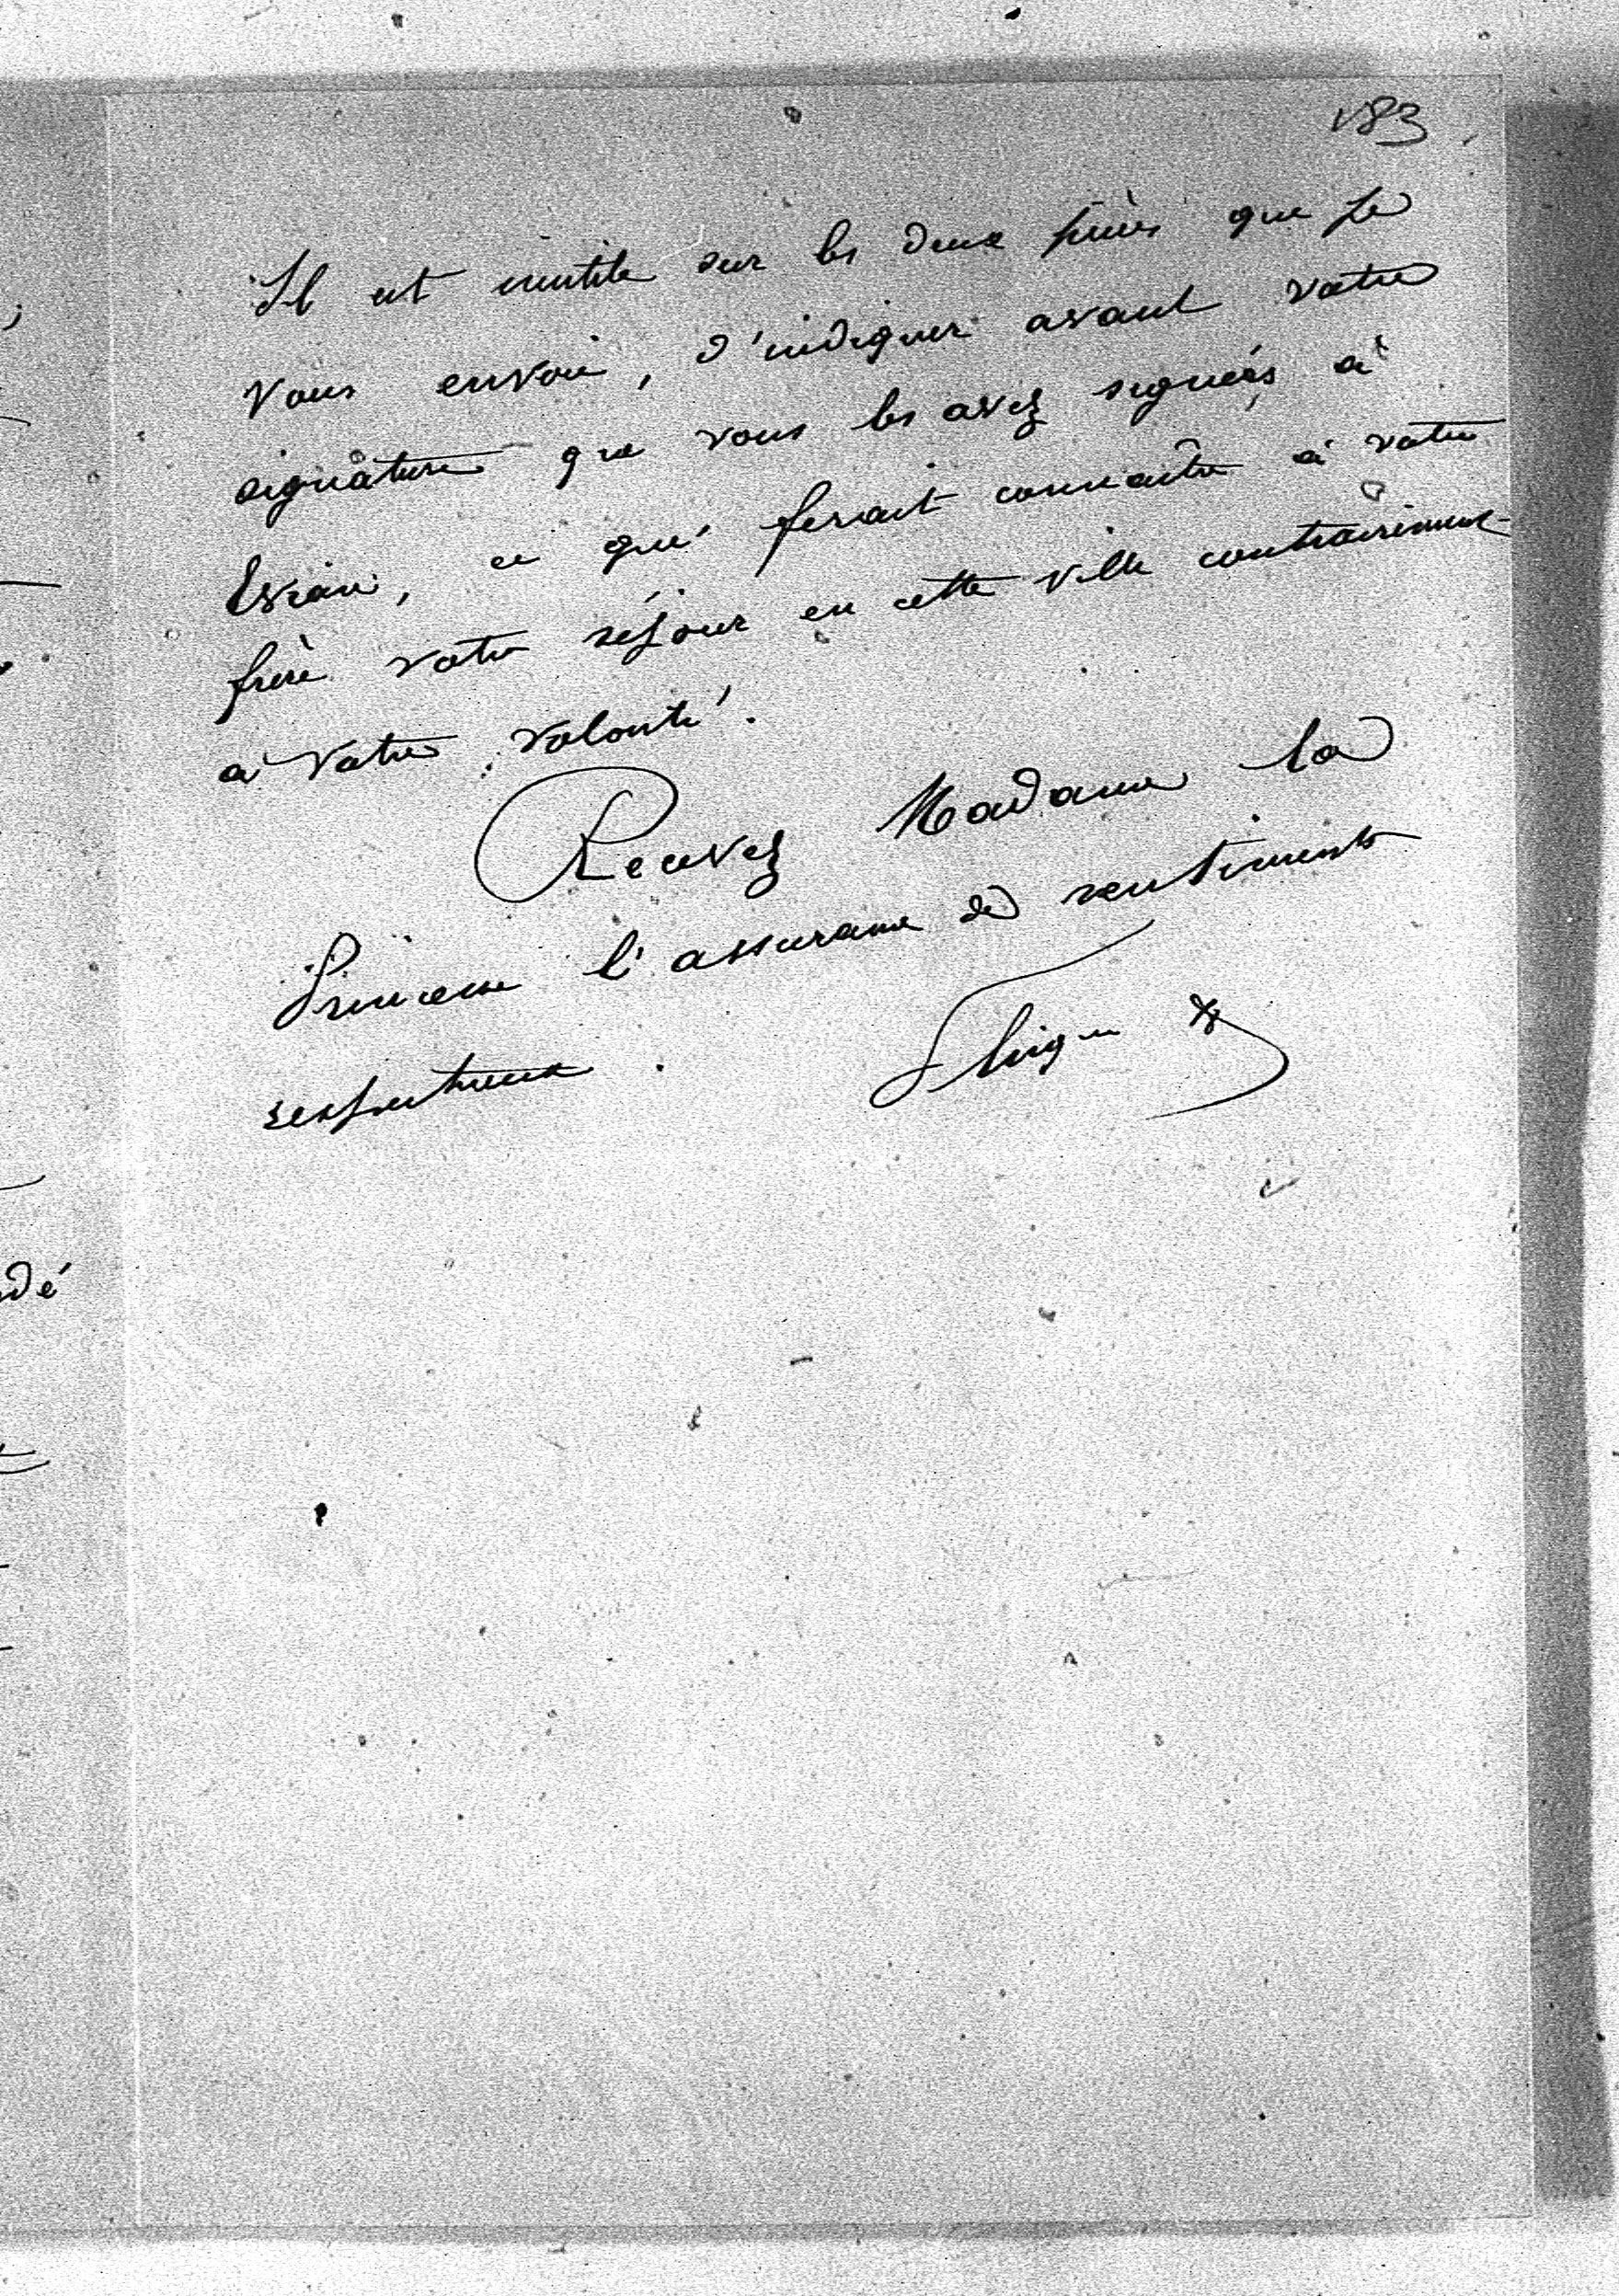 183
Il est inutile sur les deux pièces que je
vous envoie, d'indiquer avant votre
signature que vous les avez signées à
Evian, ce qui ferait connaitre à votre
frère votre séjour en cette ville contrairement
à votre volonté.
Recevez Madame la
Princesse l'assurance de sentiments
respectueux.
dé